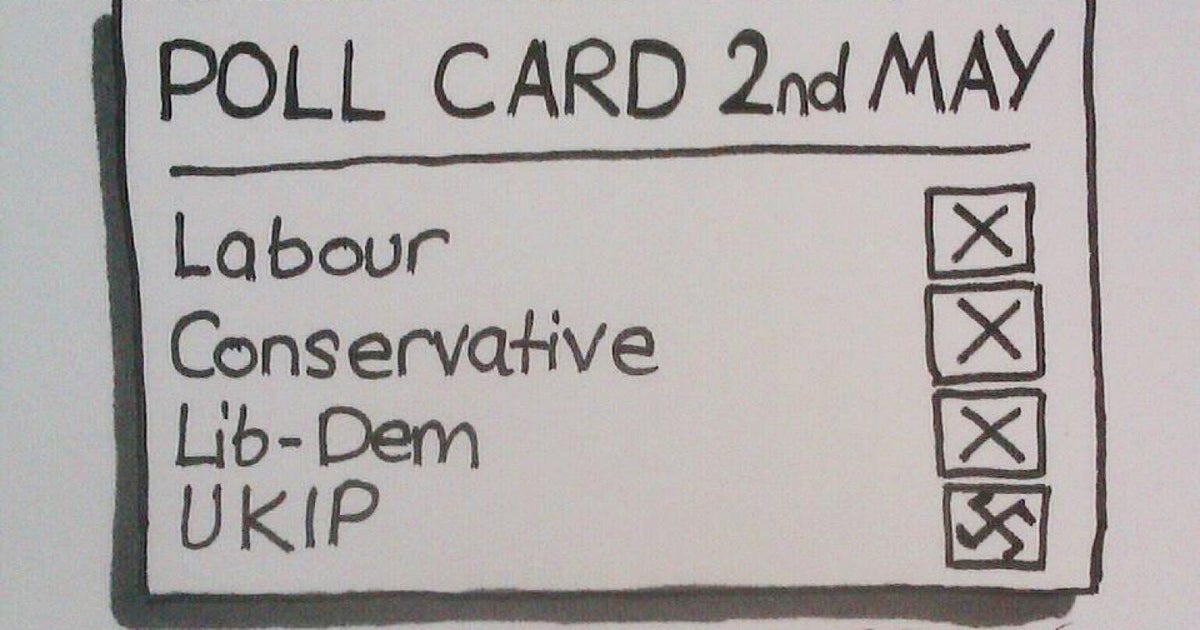 POLL CARD 2nd MAY
Labour X
Conservative X
Lib-Dem X
UKIP 卐